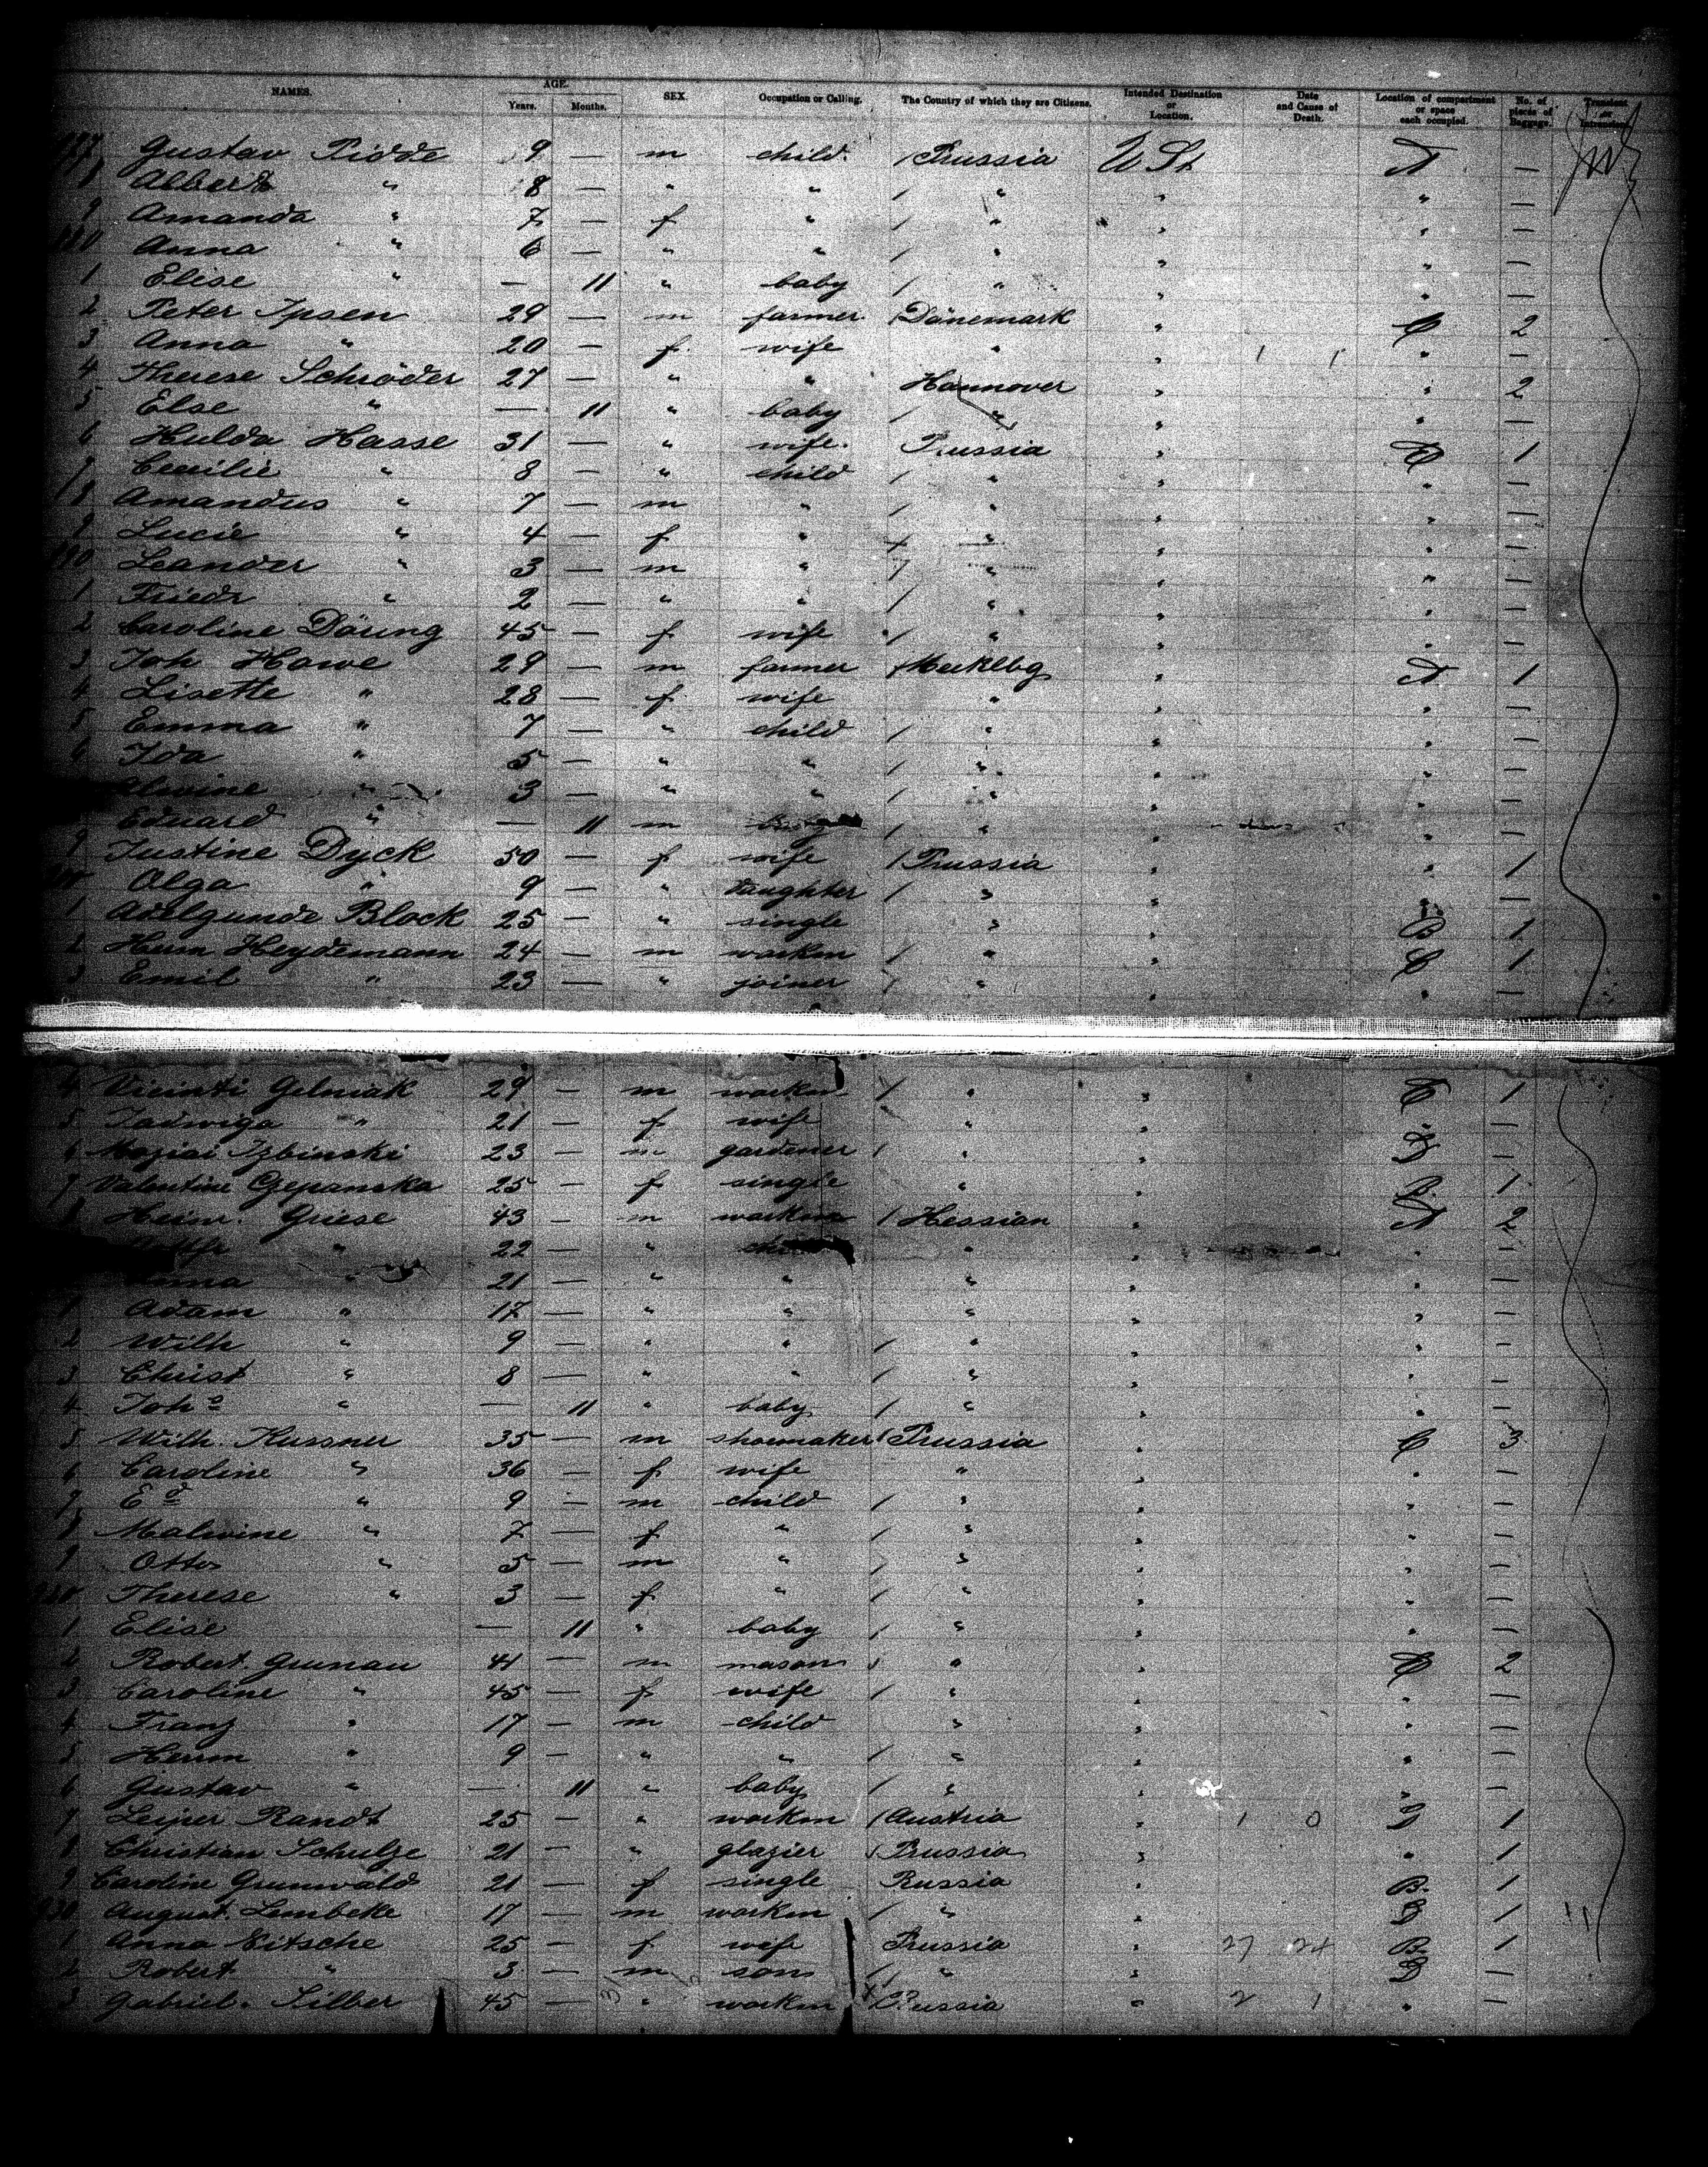 NAMES. AGE. Years. Months. SEX. Occupation or Calling. The Country of which they are Citizens. Intended Destination or Location. Date and Cause of Death. Location of compartment or space each occupied. No. of pieces of Baggage. Transient or
Gustav Pidde 9 — m child. / Prussia U St A —
8 Albert " 8 — " " / " " " —
9 Amanda " 7 — f " / " " " —
Anna " 6 — " " / " " " —
1 Elise " — 11 " baby / " " " —
2 Peter Ipsen 29 — m farmer / Dänemark " C 2
3 Anna " 20 — f wife " " " —
4 Therese Schröder 27 — " " Hannover " " 2
5 Else " — 11 " baby / " " " —
6 Hulda Hasse 31 — " wife Prussia " 1
7 Cecilie " 8 — " child / " " " —
8 Amandus " 7 — m " / " " " —
9 Lucie " 4 — f " / " " " —
Leander " 3 — m " / " " " —
1 Friedr " 2 — " " / " " " —
2 Caroline Döring 45 — f wife / " " " —
3 Joh Hawe 29 — m farmer / Mecklbg " A 1
4 Lisette " 28 — f wife " " " —
5 Emma " 7 — " child / " " " —
6 Ida " 5 — " " / " " " —
" 3 — " " / " " " —
Eduard " — 11 m / " " " —
9 Justine Dyck 50 — f wife / Prussia " " 1
Olga " 9 — " daughter / " " " —
1 Adelgunde Block 25 — " single " " B 1
2 Herm Heydemann 24 — m workm / " " C 1
3 Emil " 23 — " joiner / " " " —
4 Gelniak 29 — m workm / " " C 1
5 Jadwiga " 21 — f wife " " " —
6 Izbinski 23 — m gardener / " " D —
7 Valentine Czepanska 25 — f single " " B. 1
8 Heinr. Griese 43 — m workm / Hessian " A 2
" 22 — " " " " —
" 21 — " " " " " —
1 Adam " 17 — " " " " " —
2 Wilh " 9 — " " / " " " —
3 Christ " 8 — " " / " " " —
4 Joh " — 11 " baby / " " " —
5 Wilh. Kussner 35 — m shoemaker / Prussia " C 3
6 Caroline " 36 — f wife " " " —
7 Ed " 9 — m child / " " " —
8 Malwine " 7 — f " / " " " —
9 Otto " 5 — m " / " " " —
Therese " 3 — f " / " " " —
1 Elise — 11 " baby / " " " —
2 Robert Grunau 41 — m mason / " " C 2
3 Caroline " 45 — f wife / " " " —
4 Franz " 17 — m child " " " —
5 Herrm " 9 — " " / " " " —
6 Gustav " — 11 " baby / " " " —
7 Randt 25 — " workm / Austria " 1 0 D 1
8 Christian Schulze 21 — " glazier / Prussia " " 1
9 Caroline Grunwald 21 — f single Russia " B. 1
August. Lembeke 17 — m workm / " " D 1
1 Anna Nitsche 25 — f wife Prussia " 27 24 B. 1
2 Robert " 3 — m son / " " D —
3 Gabriel. Silber 45 — " workm Russia " 2 1 " —